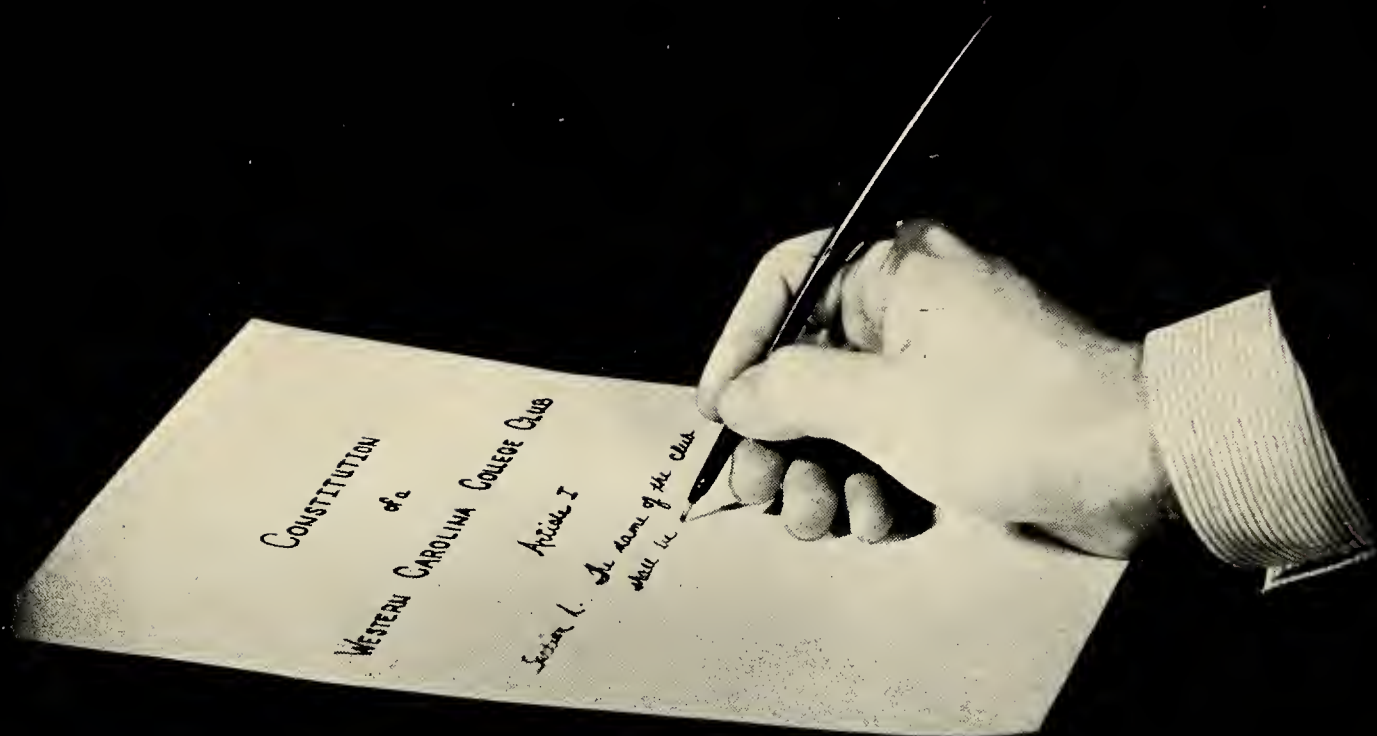 CONSTITUTION
of a
WESTERN CAROLINA COLLEGE CLUB
Article I
Section 1. The name of the club
shall be